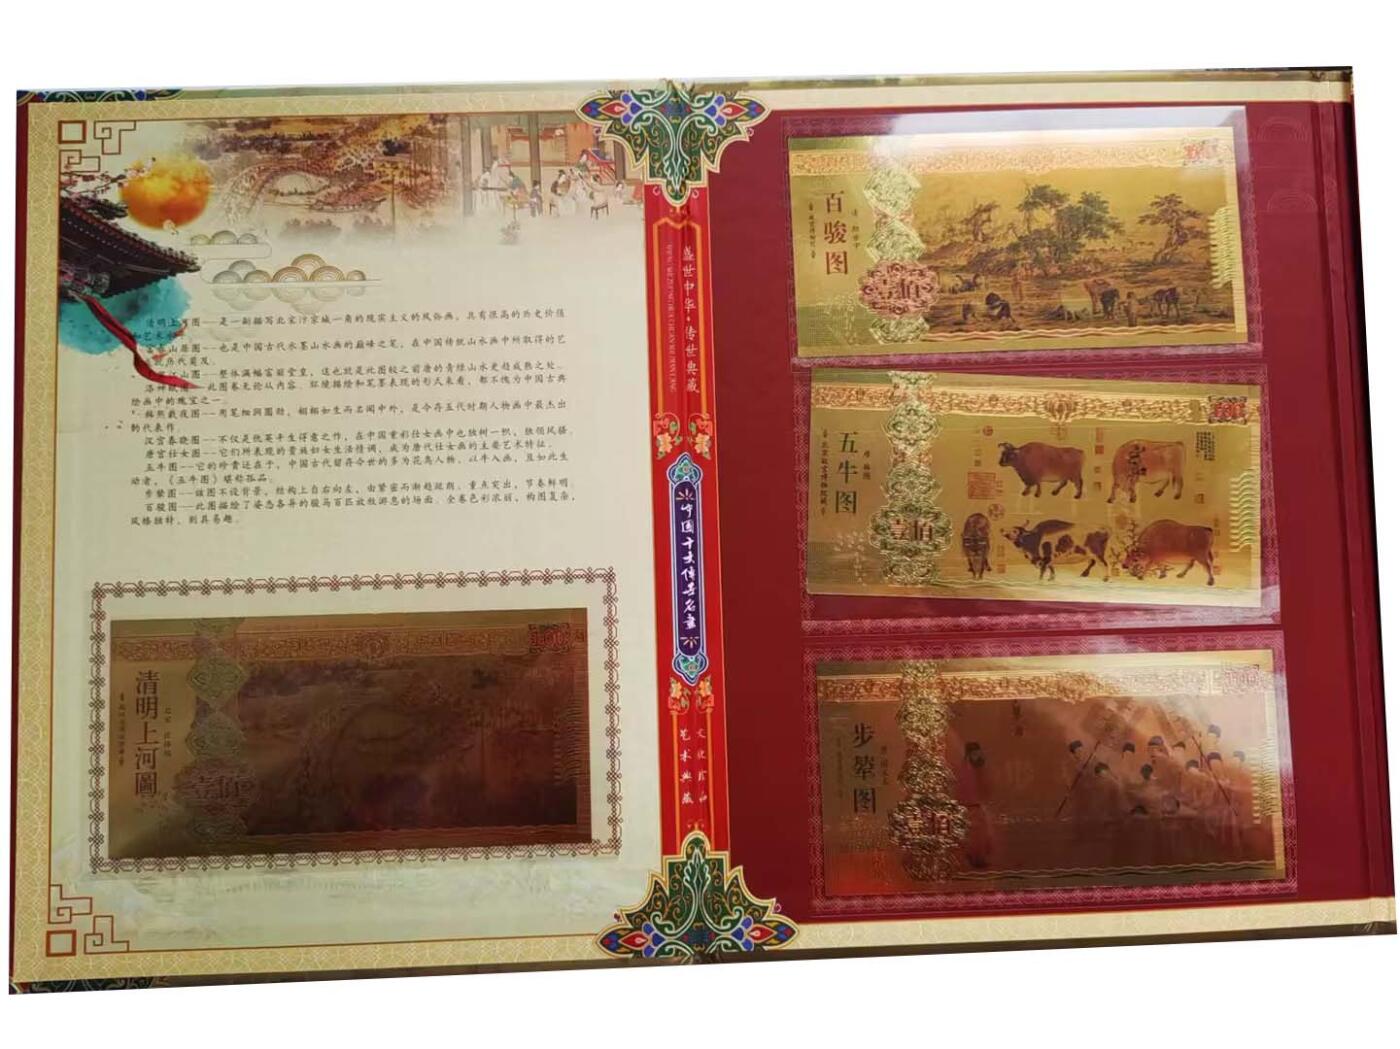 清明上河图——是一副描写北宋汴京城一角的现实主义的风俗画，具有很高的历史价值
和艺术
山居图——也是中国古代水墨山水画的巅峰之笔，在中国传统山水画中所取得的艺
历代莫及。
江山图——整体满幅富丽堂皇，这也就是此图较之前唐的青绿山水更趋成熟之处。
洛神赋图——此图卷无论从内容、环境描绘和笔墨表现的形式来看，都不愧为中国古典
绘画中的瑰宝之一。
韩熙载夜图——用笔细润圆劲，栩栩如生而名闻中外，是今存五代时期人物画中最杰出
的代表作。
汉宫春晓图——不仅是仇英平生得意之作，在中国重彩仕女画中也独树一帜，独领风骚。
唐宫仕女图——它们所表现的贵族妇女生活情调，成为唐代仕女画的主要艺术特征。
五牛图——它的珍贵还在于，中国古代留存今世的多为花鸟人物，以牛入画，且如此生
动者，《五牛图》堪称孤品。
步辇图——该图不设背景，结构上自右向左，由紧密而渐趋疏朗、重点突出，节奏鲜明
百骏图——此图描绘了姿态各异的骏马百匹放牧游息的场面。全卷色彩浓丽，构图复杂，
风格独特，别具易趣。
清明上河圖
壹佰
100
盛世中华·传世典藏
中國十大傳世名畫
文化珍品
艺术典藏
百骏图
壹佰
100
五牛图
北京故宫博物院藏
壹佰
100
步辇图
壹佰
100